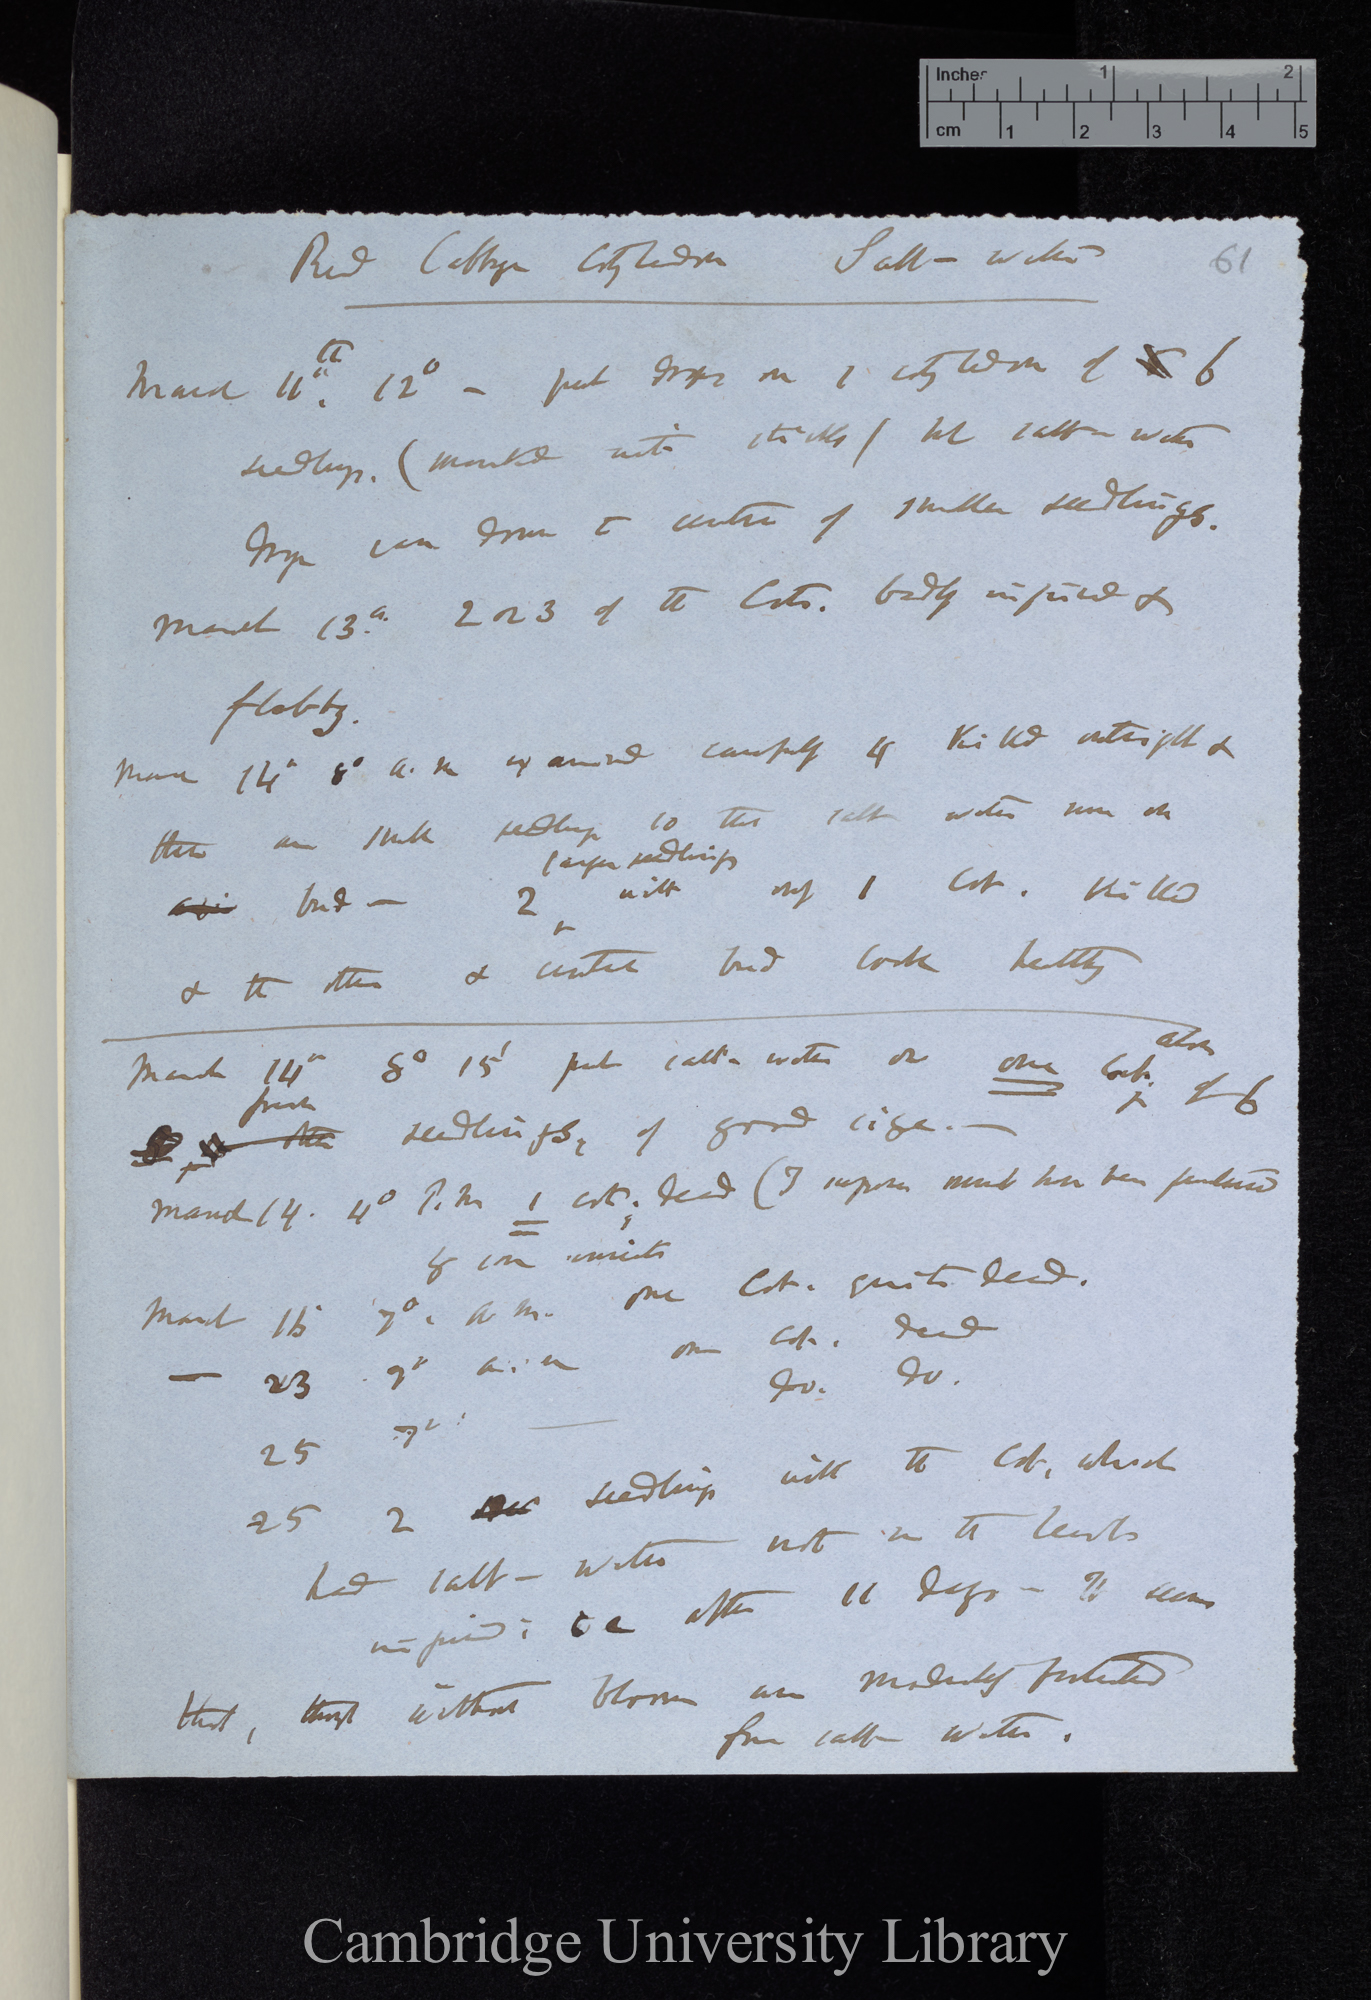 Inches 1 2
cm 1 2 3 4 5
61
Red Cabbage Cotyledon Salt-water
March 11th. 12° — put drops on 1 cotyledon of 6
seedlings. (marked with sticks) but salt-water
drops ran down to centre of smaller seedlings.
March 13th. 2 or 3 of the Cots. badly injured &
flabby.
March 14th 8° a.m examined carefully 4 killed outright &
these are small seedlings so that salt water ran on
bud — 2 larger seedlings with only 1 Cot. killed
& the other & central bud look healthy
March 14th 8° 15' put salt-water on one Cot. alone of 6
fresh seedlings, of good size. —
March 14. 4° P.m 1 cot; dead (I suppose must have been punctured
by some insects
March 16 7°. a.m. one Cot. quite dead.
— 23 7° a.m one Cot. dead
25 7° — do. do.
25 2 seedlings with the Cot, which
had salt-water not in the least
injured; ie after 11 days — It seems
that, though without bloom are moderately protected
from salt water.
Cambridge University Library